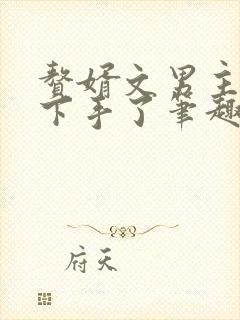 赘婿文男主
下手了笔趣
府天